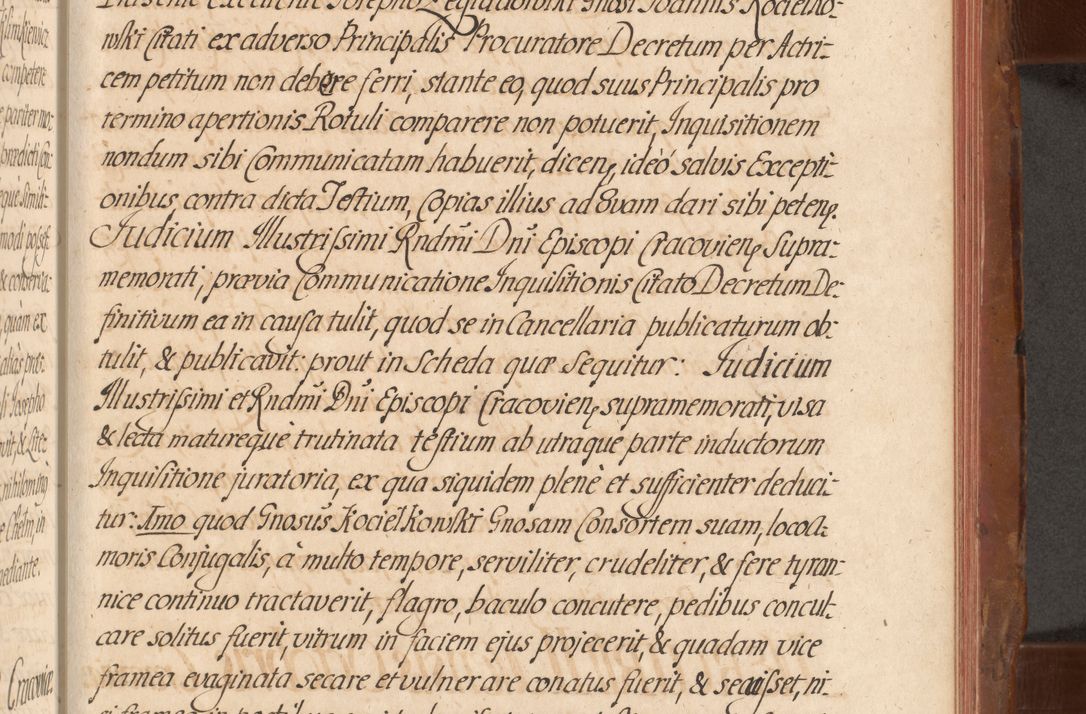 wski Citati ex adverso Principalis Procuratore Decretum per Actri-
cem petitum non debere ferri, stante eo, quod suus Principalis pro
termino apertionis Rotuli comparere non potuerit, Inquisitionem
nondum sibi Communicatam habuerit, dicen, ideò salvis Excepti-
onibus contra dicta Testium, Copias illius ad Evam dari sibi peten.
Judicium Illustrissimi Rndmi Dni Episcopi Cracovien Supra-
memorati, prævia Communicatione Inquisitionis Citato Decretum De-
finitivum ea in causa tulit, quod se in Cancellaria publicaturum ob-
tulit, & publicavit: prout in Scheda quæ Sequitur: Judicium
Illustrissimi et Rndmi Dni Episcopi Cracovien supramemorati, visa
& lecta matureque trutinata testium ab utraque parte inductorum
Inquisitione juratoria, ex qua siquidem plenè et sufficienter deduci-
tur: Imo quod Gnosus Kociełkowski Gnosam Consortem suam, loco A-
moris Conjugalis, à multo tempore, serviliter, crudeliter, & fere tyran-
nice continuo tractaverit, flagro, baculo concutere, pedibus concul-
care solitus fuerit, vitrum in faciem ejus projecerit, & quadam vice
framea evaginata secare et vulnerare conatus fuerit, & secuisset, ni-